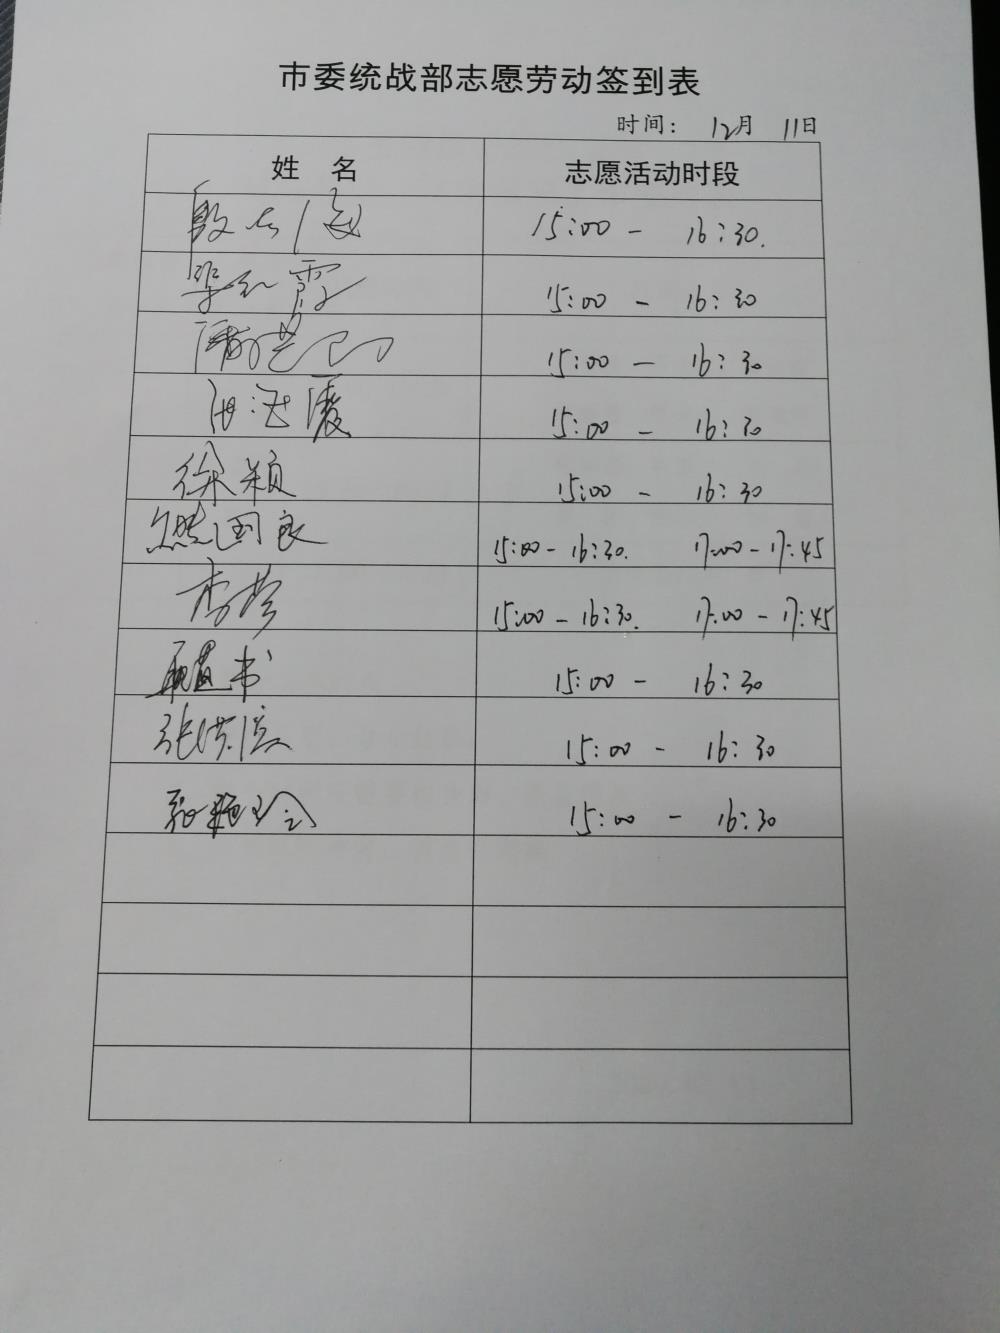 市委统战部志愿劳动签到表
时间： 12月 11日
姓 名 志愿活动时段
15:00 - 16:30.
梁红霞 15:00 - 16:30
15:00 - 16:30
15:00 - 16:30
徐颖 15:00 - 16:30
熊国良 15:00-16:30. 17:00-17:45
李 15:00-16:30. 17:00-17:45
书 15:00 - 16:30
张洪滨 15:00 - 16:30
15:00 - 16:30